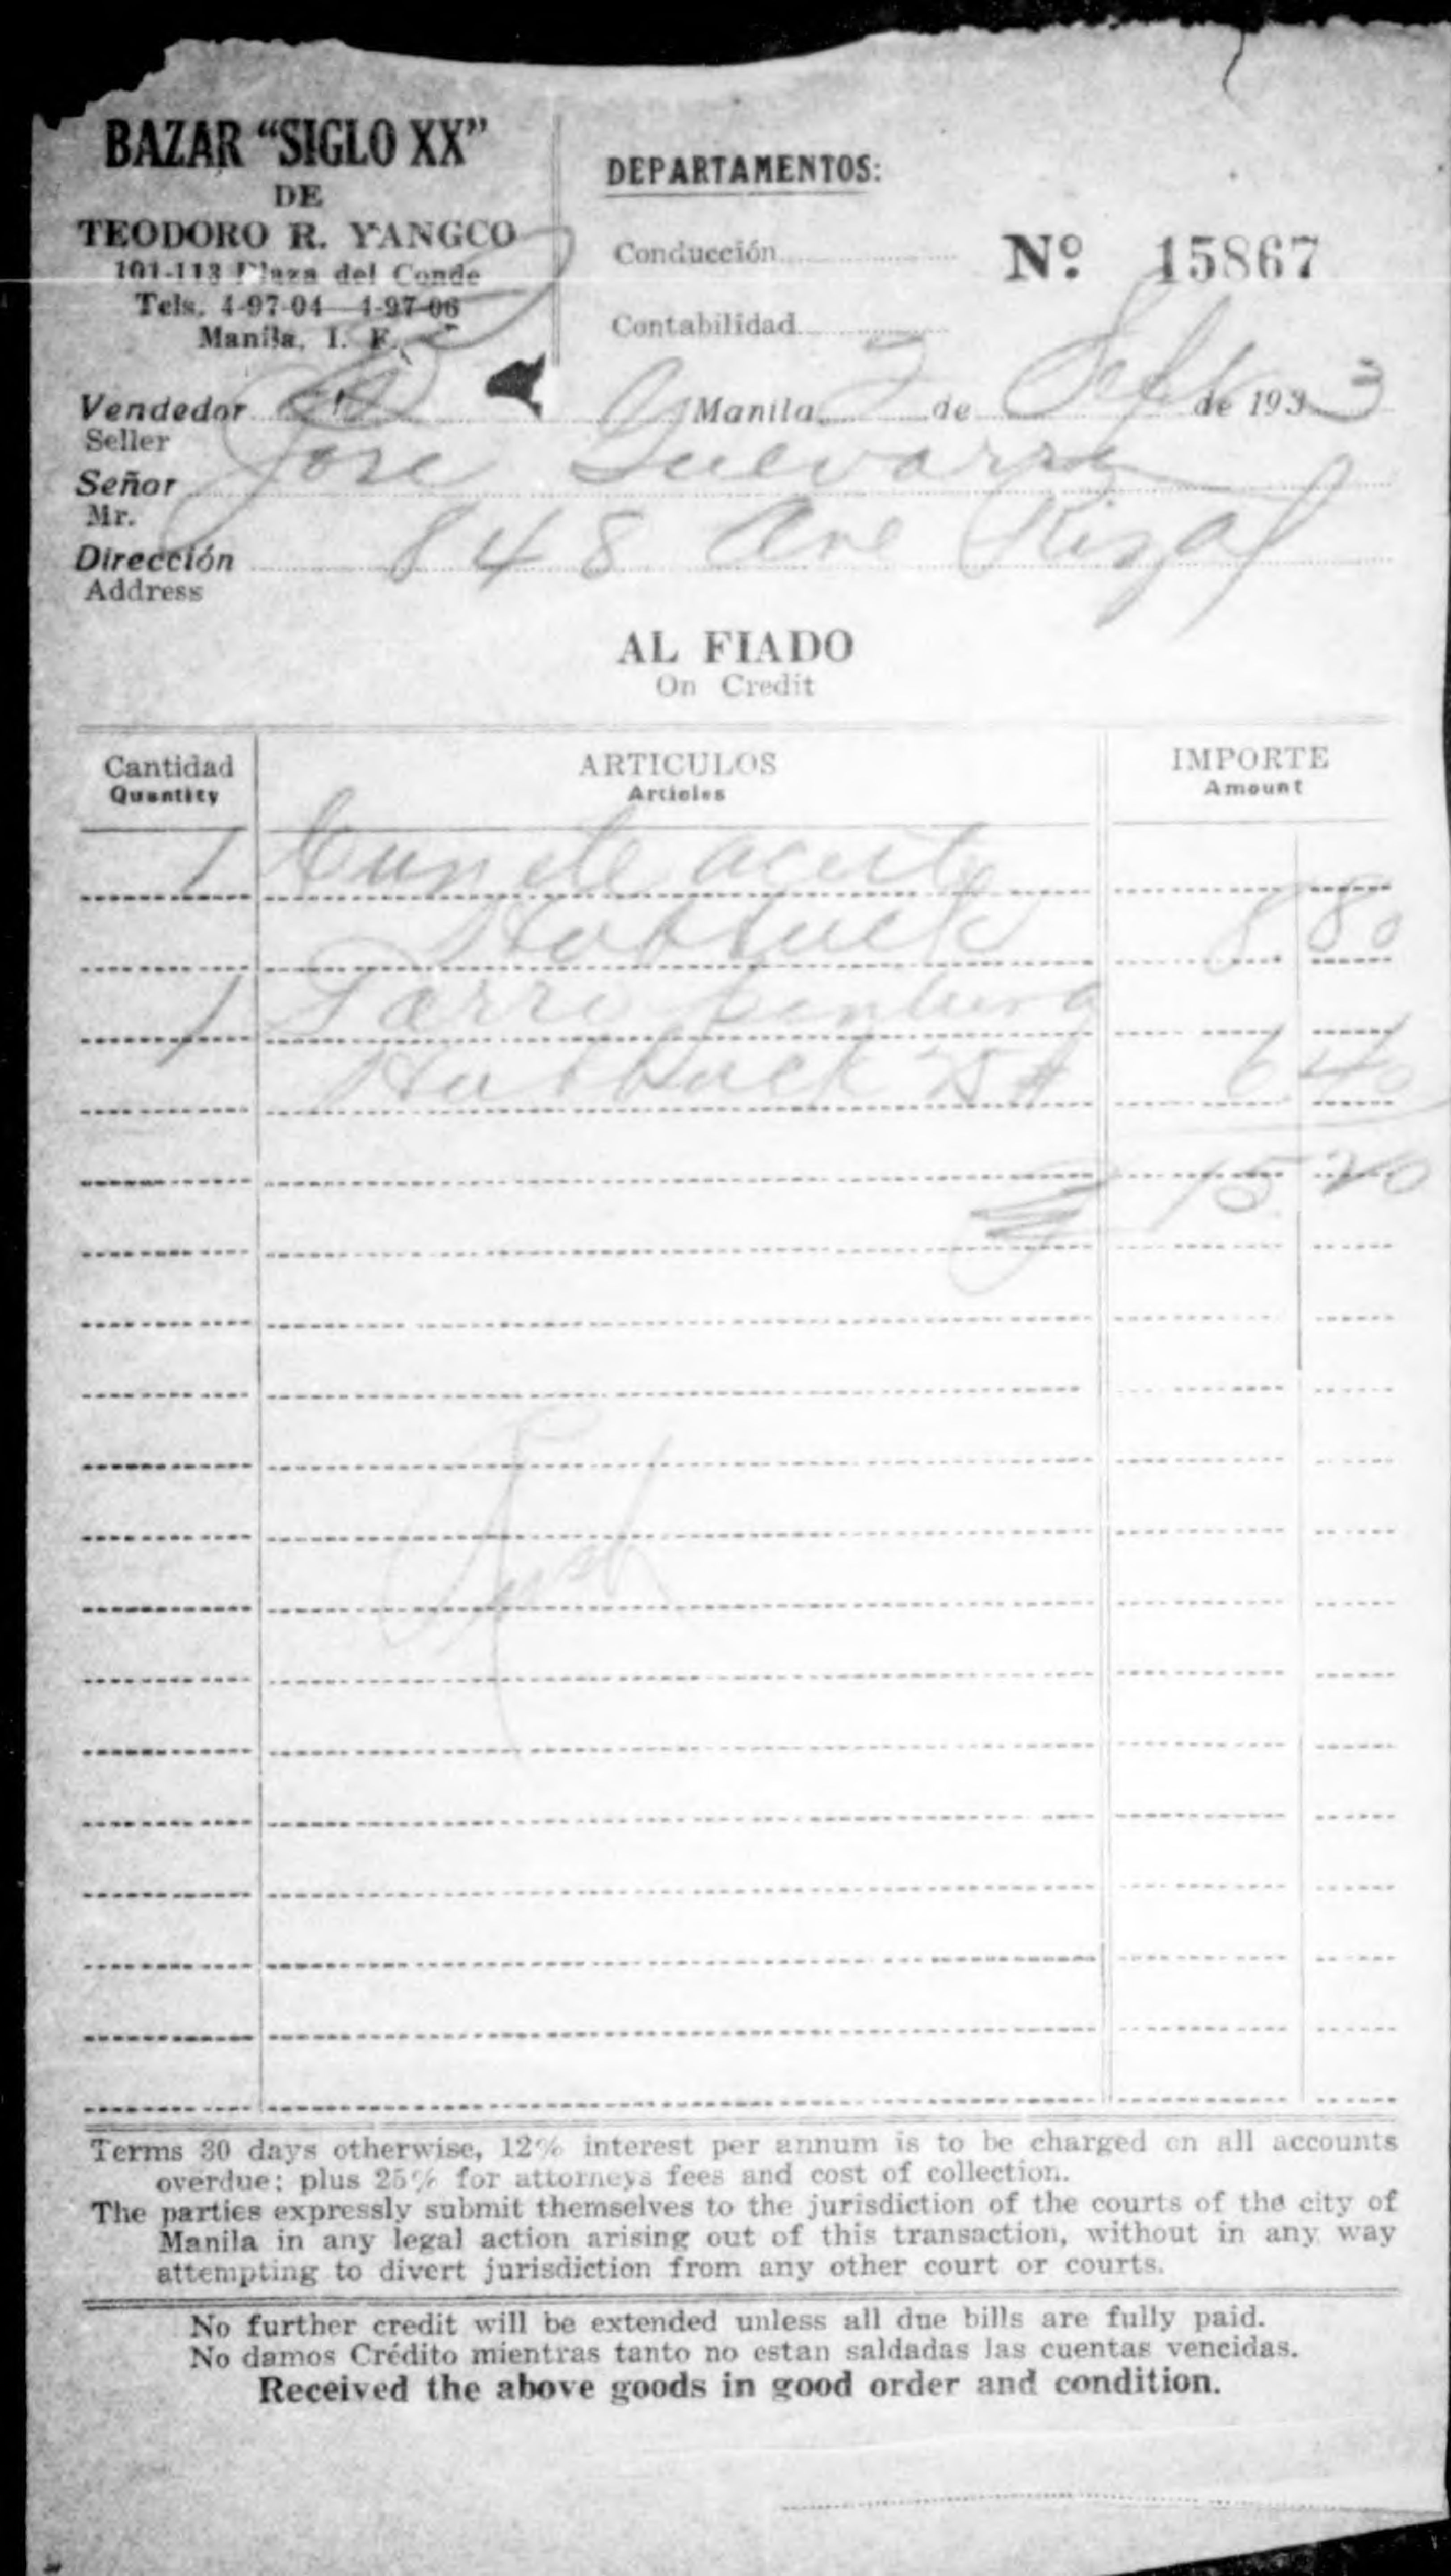 BAZAR “SIGLO XX”
DE
TEODORO R. YANGCO
101-113 Plaza del Conde
Tels. 4-97-04 4-97-06
Manila, I. F.
DEPARTAMENTOS:
Conducción
Nº 15867
Contabilidad
Vendedor
Seller
Manila, 2 de Sept de 1933
Señor Jose Guevarra
Mr.
Dirección 848 Ave Rizal
Address
AL FIADO
On Credit
Cantidad ARTICULOS IMPORTE
Quantity Articles Amount
1 Cuñete aceite
Hubbuck 8 80
1
Hubbuck 25 # 6 40
15 20
Terms 30 days otherwise, 12% interest per annum is to be charged on all accounts
overdue; plus 25% for attorneys fees and cost of collection.
The parties expressly submit themselves to the jurisdiction of the courts of the city of
Manila in any legal action arising out of this transaction, without in any way
attempting to divert jurisdiction from any other court or courts.
No further credit will be extended unless all due bills are fully paid.
No damos Crédito mientras tanto no estan saldadas las cuentas vencidas.
Received the above goods in good order and condition.